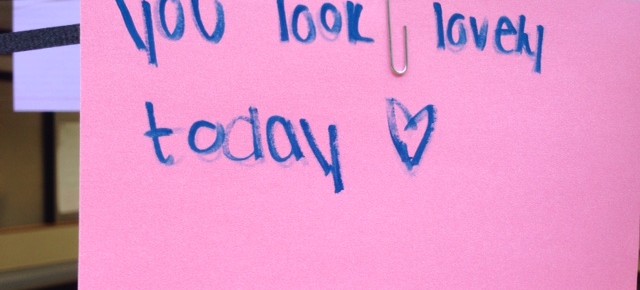 you look lovely
today ♡